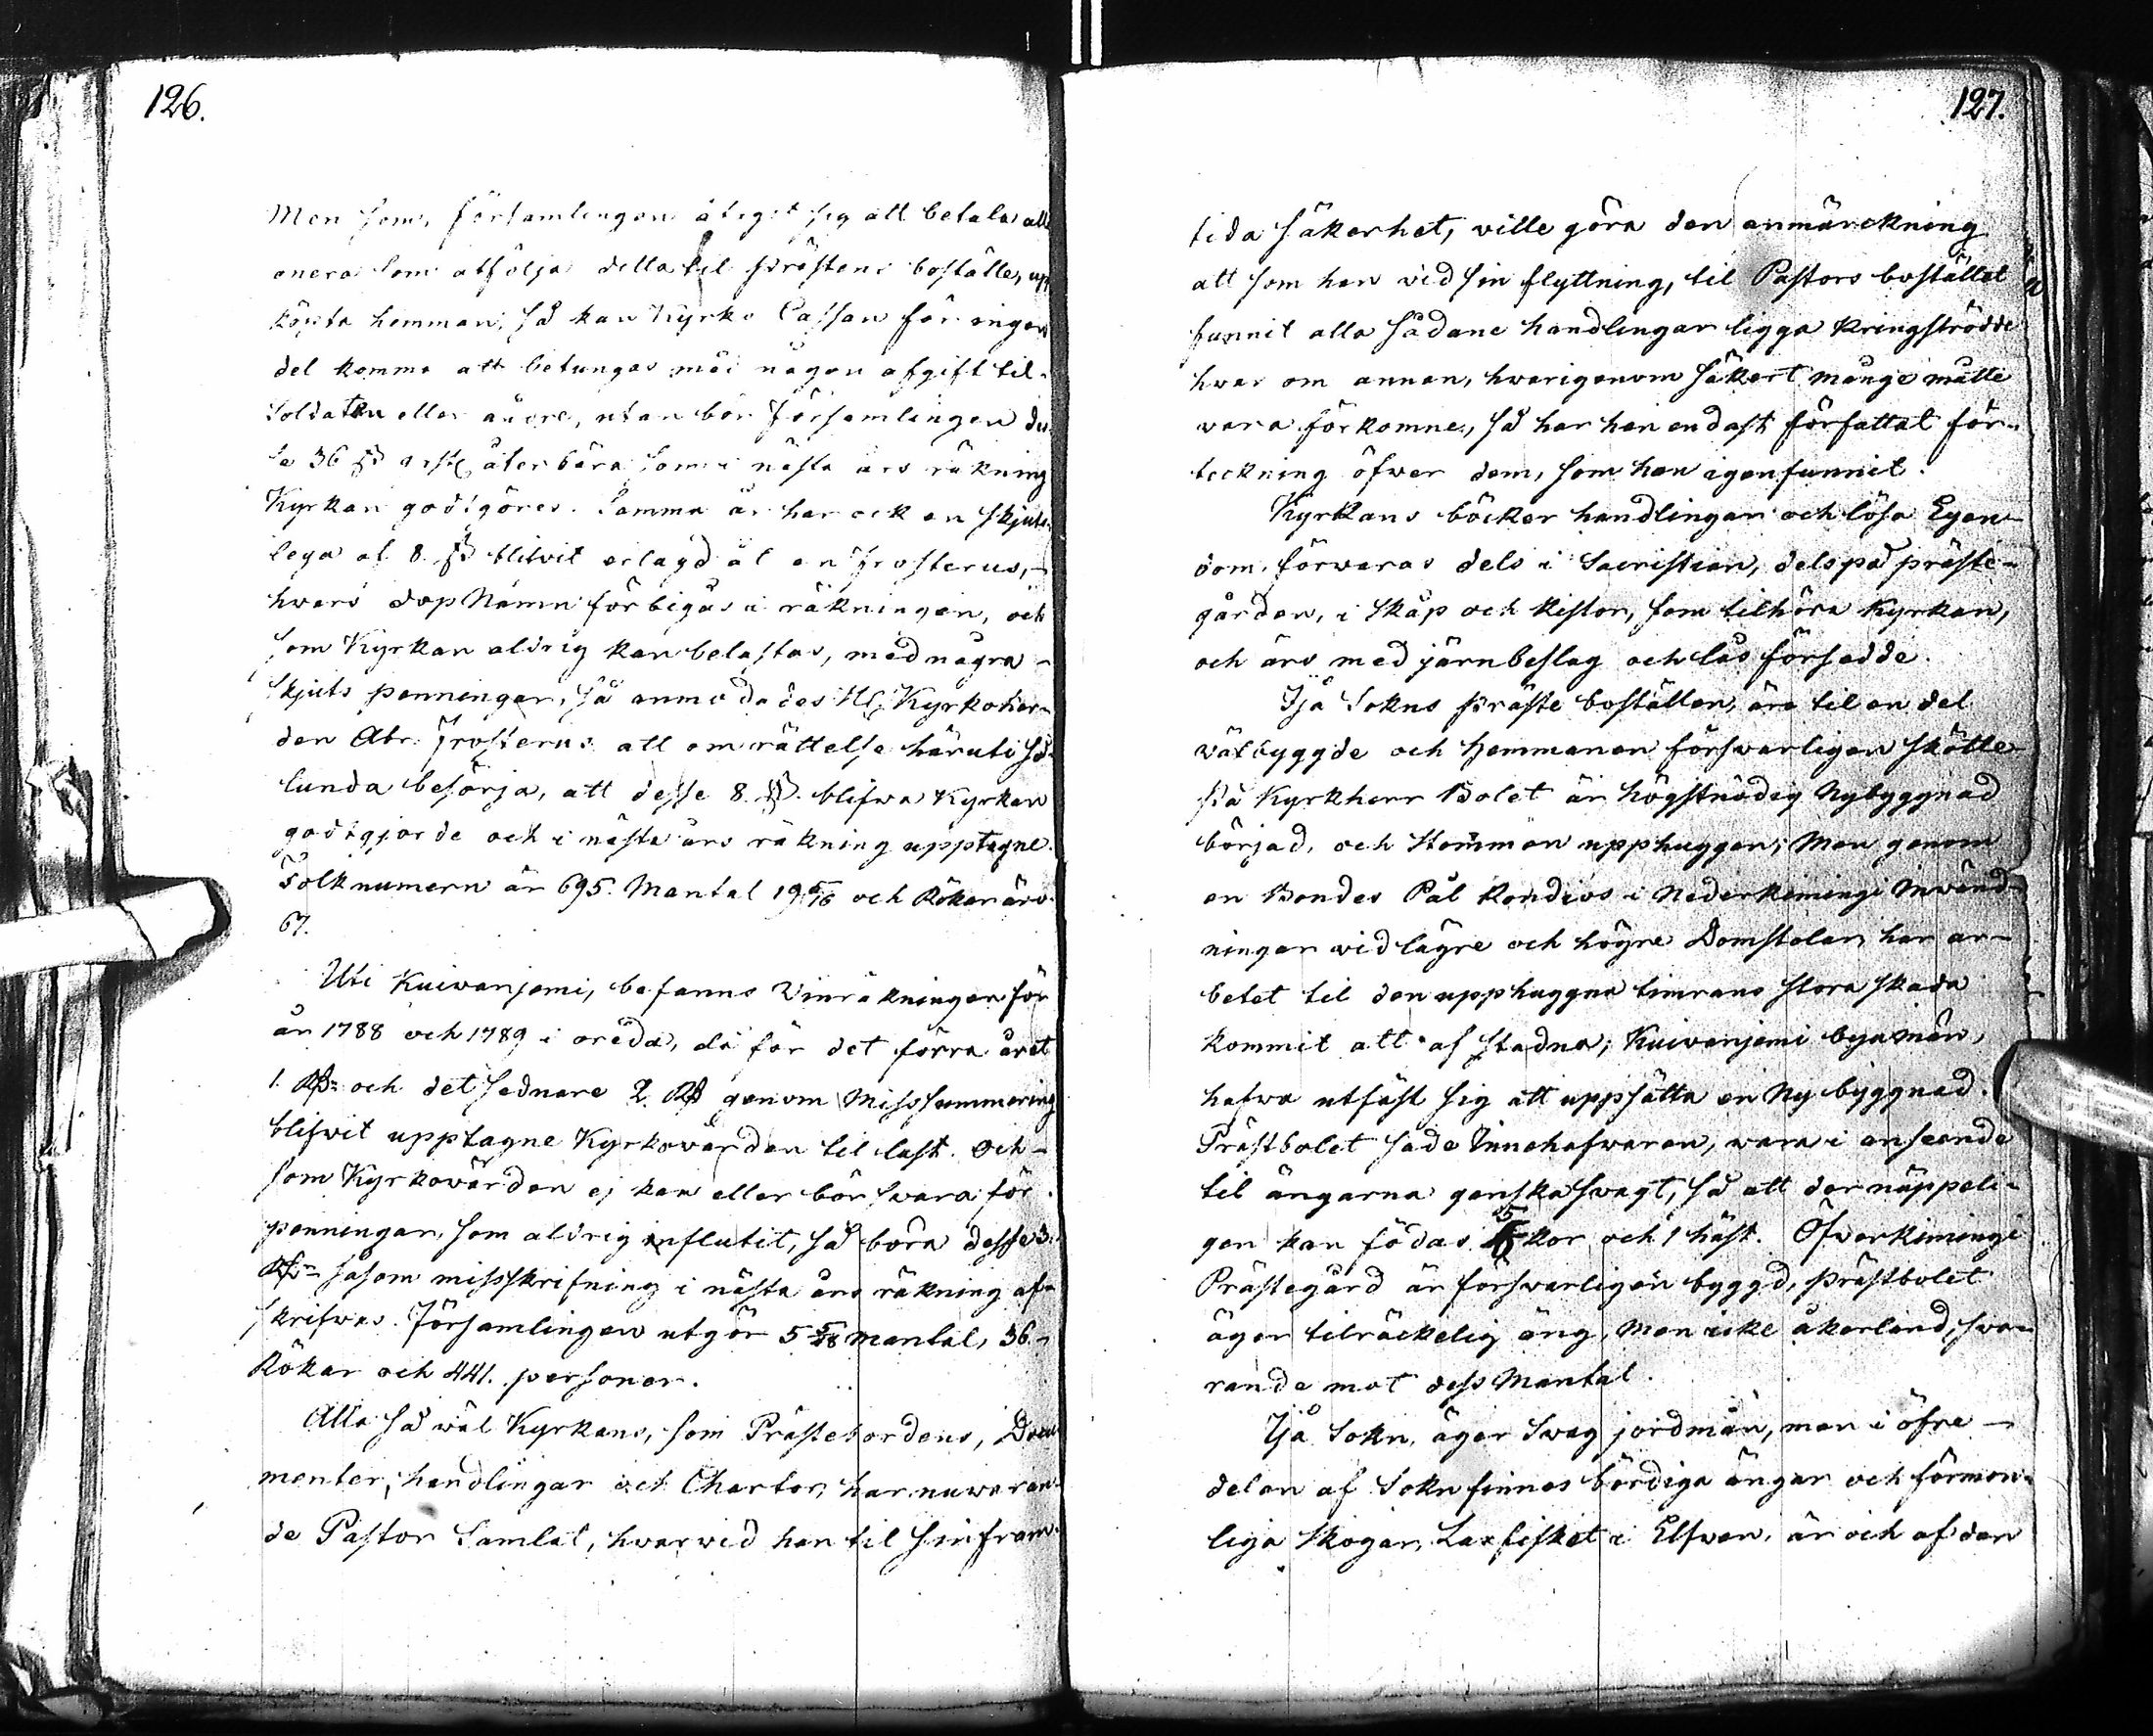 126.
Men som, församlingen åtagit sig att betala alla
onera som åtfölja detta til Prästens boställe, upp
köpta hemman, så kan Kyrko Cassan för ingen
del komma att betungas med någon afgift til
Soldaten eller andre, utan bör Församlingen des
se 36 återbära som i nästa års räkning
Kyrkan godtgöres. Samma år har ock en skjuts
lega af 8. blifvit erlagd åt en Frosterus,
hvars dopNamn förbigås i räkningen, och
som Kyrkan aldrig kan belastas, med några
skjuts penningar, så anmodades H. Kyrkoher-
den Abr. Frosterus att om rättelse häruti så-
lunda besörja, att desse 8. blifwa Kyrkan
godtgjorde och i nästa års räkning upptagne.
Folknumern är 695. Mantal 19 5/16 och Rökar äro
67.
Uti Kuivaniemi, befanns Vinräkningen för
år 1788 och 1789 i oreda, då för det förra året
1. Rd och det sednare 2. Rd genom Misssummering
blifwit upptagne Kyrkovärden til last. Och
som Kyrkovärden ej kan eller bör svara för
penningar, som aldrig influtit, så böra desse 3.
Rd såsom missskrifning i nästa års räkning af-
skrifvas. Församlingen utgör 5 5/48 mantal, 36
Rökar och 441. personer.
Alla så wäl Kyrkans, som Prästebordens, Docu
menter, handlingar och Chartor, har nuwaran-
de Pastor Samlat, hvarvid han til sin fram-
127.
tida säkerhet, ville göra den anmärckning
att som han vid sin flyttning, til Pastors bostället
funnit alla sådane handlingar ligga kringströdde
hvar om annan, hvarigenom säkert många måtte
vara förkomne, så har han endast författat för-
teckning öfwer dem, som han igenfunnit.
Kyrkans böcker handlingar och lösa Egen-
dom, förvaras dels i Sacristian, dels på präste-
gården, i skåp och kistor, som tilhöra Kyrkan,
och äro med järnbeslag och lås försedde.
Ijå Sokns präste boställen, äro til en del
välbyggde och Hemmanen försvarligen skötte
På Kyrkherr Bolet är högstnödig Nybyggnad
börjad, och Stommen upphuggen; Men genom
en Bondes Pål Kondios i Nederkimingi Inwänd-
ningar wid lägre och högre Domstolar, har ar-
betet til den upphuggna timrans stora skada
kommit att af stadna; Kuivaniemi byamän,
hafwa utfäst sig att uppsätta en Ny byggnad.
Prästbolet sade Innehafwaren, wara i anseende
til ängarna ganska svagt, så att der näppeli-
gen kan födas 5 kor och 1 häst. Öfwerkimingi
Prästegård är forsvarligen byggd, prästbolet
äger tilräckelig äng, men icke åkerland, sva-
rande mot dess Mantal.
Ijå Sokn, äger Svag jordmån, men i öfre
delen af Sokn finnas bördiga ängar och förmon-
liga skogar, Laxfisket i Elfwen, är och af den